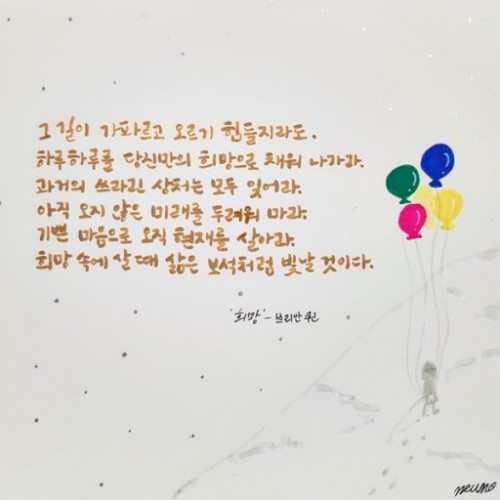 그 길이 가파르고 오르기 힘들지라도.
하루하루를 당신만의 희망으로 채워 나가라.
과거의 쓰라린 상처는 모두 잊어라.
아직 오지 않은 미래를 두려워 마라.
기쁜 마음으로 오직 현재를 살아라.
희망 속에 살 때 삶은 보석처럼 빛날 것이다.
'희망' - 쓰리반 쿠인